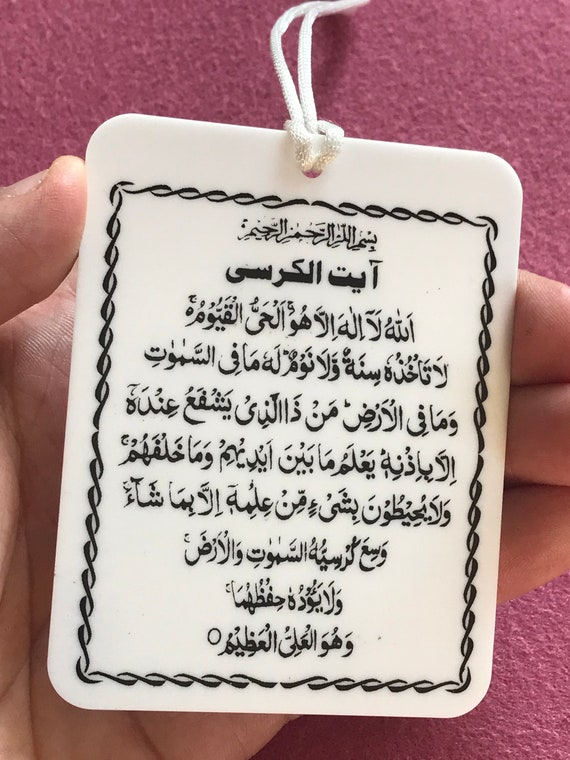 بِسْمِ اللهِ الرَّحْمٰنِ الرَّحِيْمِ
آیت الکرسی
اَللهُ لَآ اِلٰهَ اِلَّا هُوَۚ اَلْحَيُّ الْقَيُّوْمُ۬ۚ
لَا تَاْخُذُهٗ سِنَةٌ وَّلَا نَوْمٌؕ لَهٗ مَا فِى السَّمٰوٰتِ
وَمَا فِى الْاَرْضِؕ مَنْ ذَا الَّذِىْ يَشْفَعُ عِنْدَهٗٓ
اِلَّا بِاِذْنِهٖؕ يَعْلَمُ مَا بَيْنَ اَيْدِيْهِمْ وَمَا خَلْفَهُمْۚ
وَلَا يُحِيْطُوْنَ بِشَىْءٍ مِّنْ عِلْمِهٖٓ اِلَّا بِمَا شَآءَۚ
وَسِعَ كُرْسِيُّهُ السَّمٰوٰتِ وَالْاَرْضَۚ
وَلَا يَـُٔوْدُهٗ حِفْظُهُمَاۚ
وَهُوَ الْعَلِىُّ الْعَظِيْمُ○